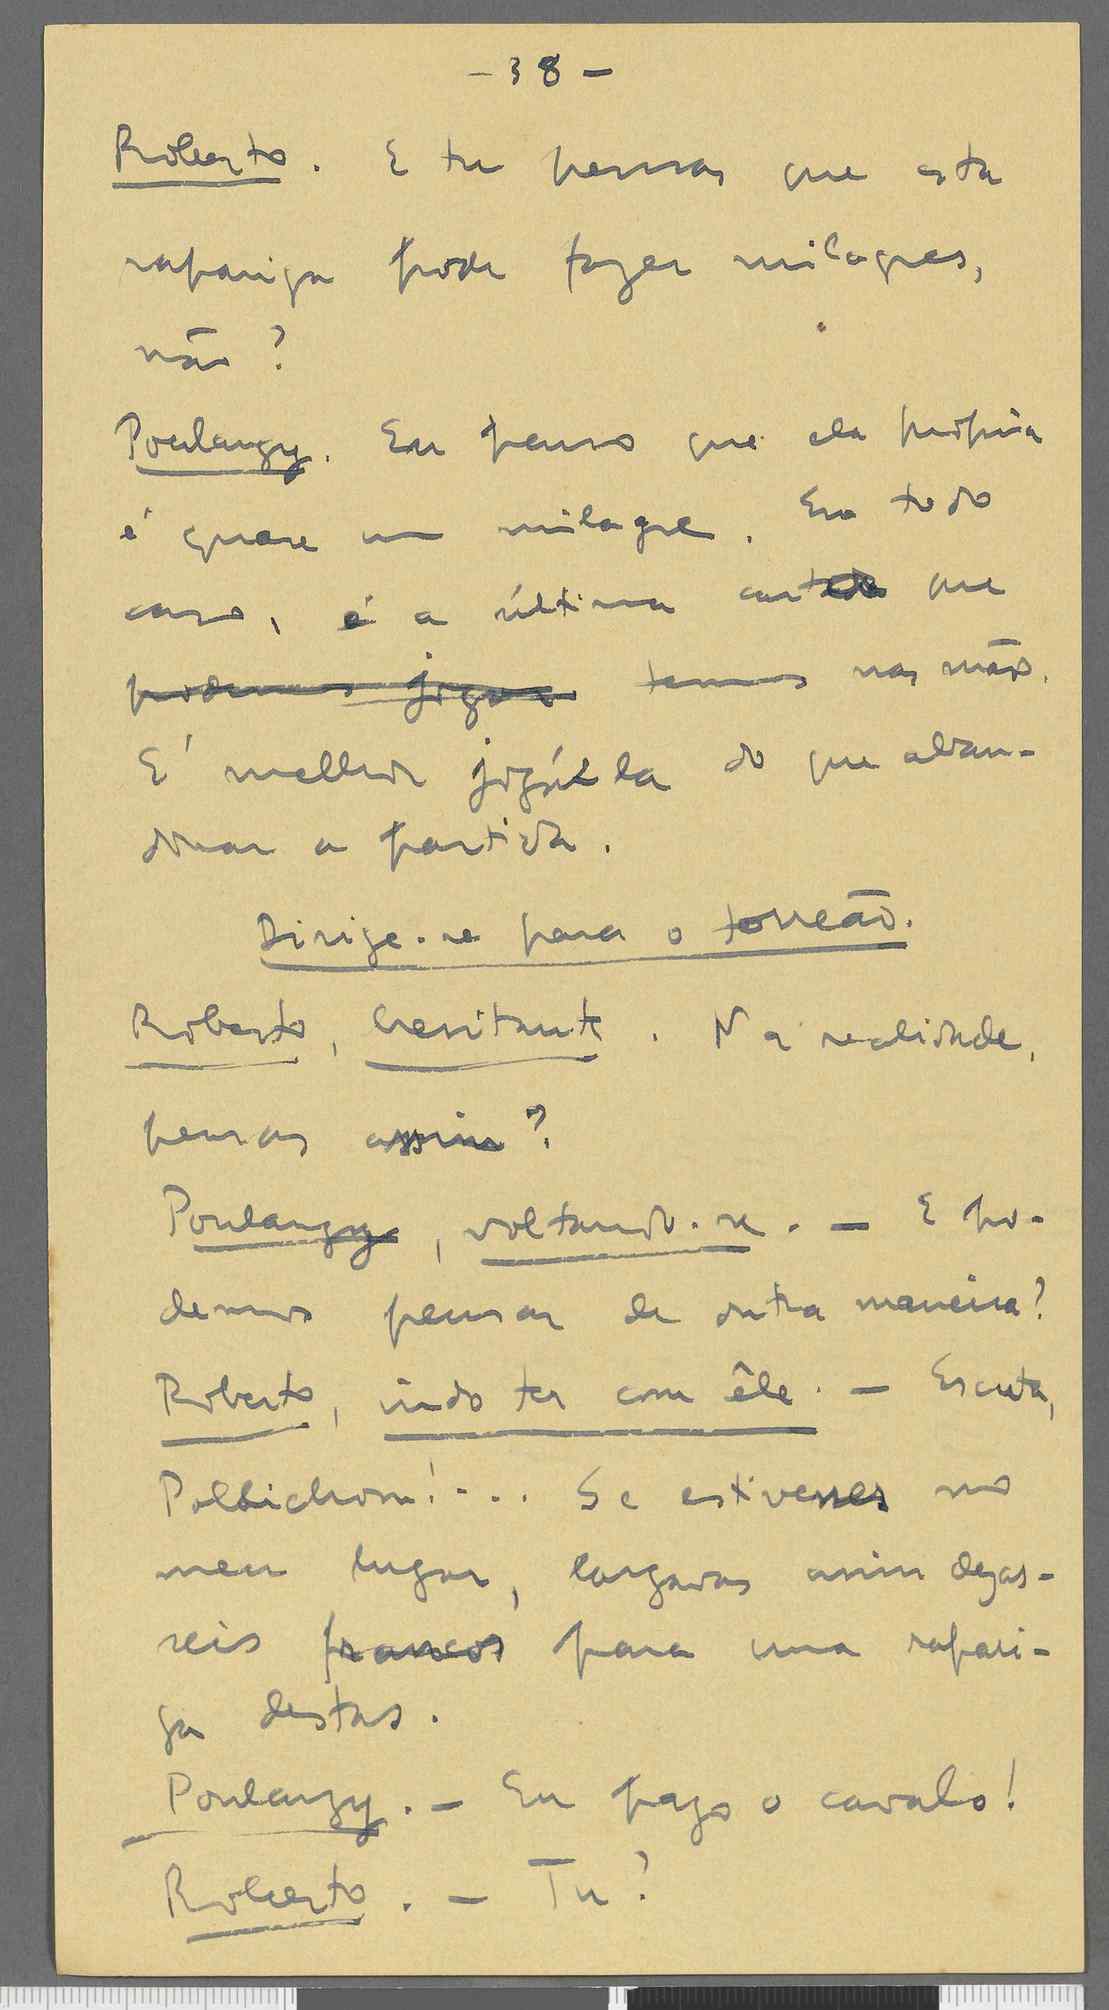 - 38 -
Roberto. E tu pensas que esta
rapariga pode fazer milagres,
não?
Poulengy. Eu penso que ela própria
é quase um milagre. Em todo
caso, é a última carta que
podemos jogar temos nas mãos.
E' melhor jogá-la do que aban-
donar a partida.
Dirige-se para o torreão.
Roberto, hesitante. Na realidade,
pensas assim?
Poulangy, voltando-se. - E po-
demos pensar de outra maneira?
Roberto, indo ter com êle. - Escuta,
Pollichon!... Se estivesses no
meu lugar, largavas assim dezas-
seis francos para uma rapari-
ga destas.
Poulengy. - Eu pago o cavalo!
Roberto. - Tu?